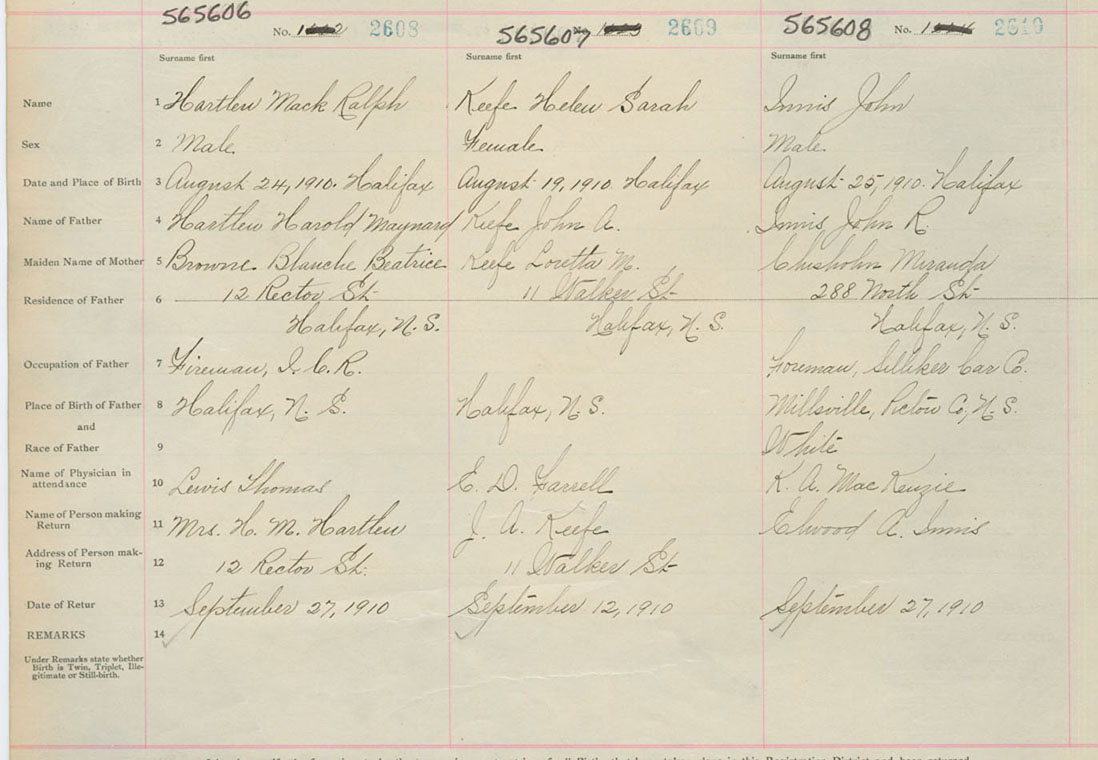 565606
No. 2608
565607 No. 2609
565608 No. 2610
Surname first Surname first Surname first
Name 1 Hartlen Mack Ralph Keefe Helen Sarah Innis John
Sex 2 Male Female Male
Date and Place of Birth 3 August 24, 1910. Halifax August 19, 1910 Halifax August 25, 1910. Halifax
Name of Father 4 Hartlen Harold Maynard Keefe John A. Innis John R.
Maiden Name of Mother 5 Browne Blanche Beatrice Keefe Loretta M. Chisholm Miranda
Residence of Father 6 12 Rector St 11 Walker St 288 North St
Halifax, N.S. Halifax, N.S. Halifax, N.S.
Occupation of Father 7 Fireman, I.C.R. Foreman, Silliker Car Co.
Place of Birth of Father 8 Halifax, N.S. Halifax, N.S. Millsville, Pictou Co, N.S.
and
Race of Father 9 White
Name of Physician in
attendance 10 Lewis Thomas E. D. Farrell K. A. MacKenzie
Name of Person making
Return 11 Mrs. H. M. Hartlen J. A. Keefe Elwood A. Innis
Address of Person mak-
ing Return 12 12 Rector St. 11 Walker St
Date of Retur 13 September 27, 1910 September 12, 1910 September 27, 1910
REMARKS 14
Under Remarks state whether
Birth is Twin, Triplet, Ille-
gitimate or Still-birth.